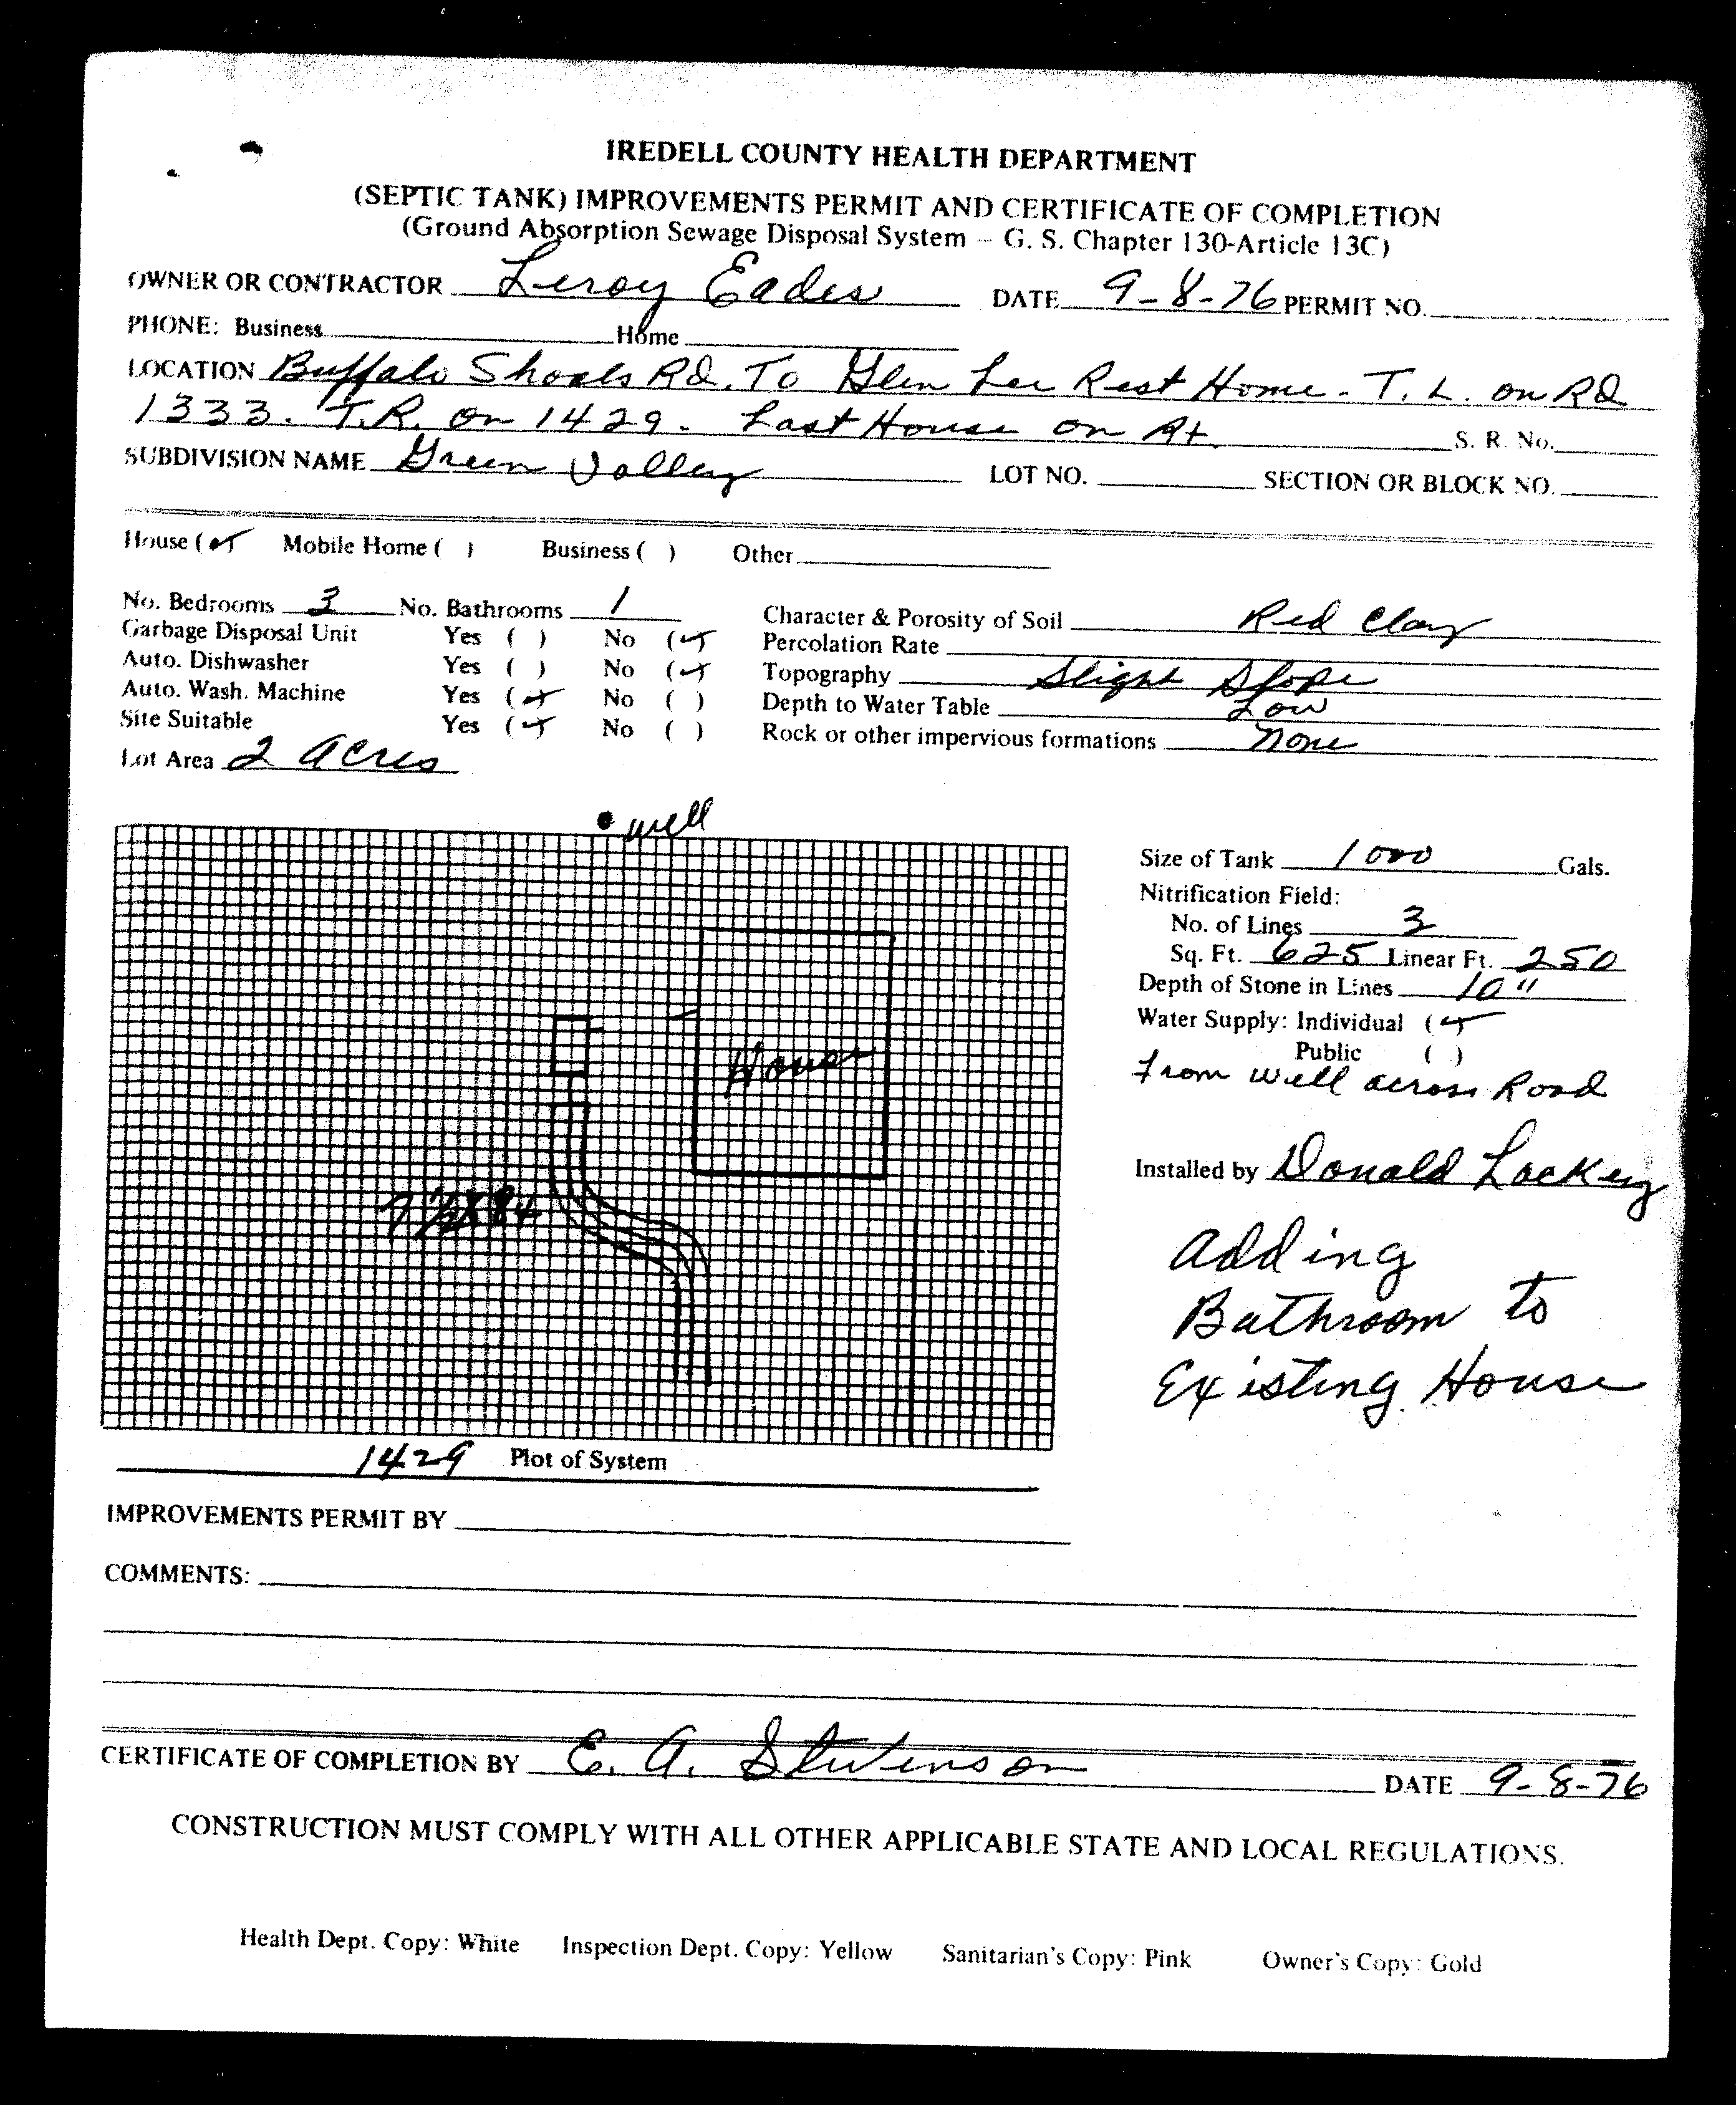 IREDELL COUNTY HEALTH DEPARTMENT
(SEPTIC TANK) IMPROVEMENTS PERMIT AND CERTIFICATE OF COMPLETION
(Ground Absorption Sewage Disposal System – G. S. Chapter 130-Article 13C)
OWNER OR CONTRACTOR Leroy Eades DATE 9-8-76 PERMIT NO.
PHONE: Business Home
LOCATION Buffalo Shoals Rd. To Glen Lee Rest Home - T. L. on Rd
1333. T.R. on 1429. Last House on Rt. S. R. No.
SUBDIVISION NAME Green Valley LOT NO. SECTION OR BLOCK NO.
House (✓) Mobile Home ( ) Business ( ) Other
No. Bedrooms 3 No. Bathrooms 1 Character & Porosity of Soil Red Clay
Garbage Disposal Unit Yes ( ) No (✓) Percolation Rate
Auto. Dishwasher Yes ( ) No (✓) Topography Slight Slope
Auto. Wash. Machine Yes (✓) No ( ) Depth to Water Table Low
Site Suitable Yes (✓) No ( ) Rock or other impervious formations none
Lot Area 2 acres
well
House
7 1/2 X 84
1429 Plot of System
Size of Tank 1000 Gals.
Nitrification Field:
No. of Lines 3
Sq. Ft. 625 Linear Ft. 250
Depth of Stone in Lines 10"
Water Supply: Individual (✓)
Public ( )
From well across Road
Installed by Donald Lackey
Adding
Bathroom to
Existing House
IMPROVEMENTS PERMIT BY
COMMENTS:
CERTIFICATE OF COMPLETION BY E. A. Stevenson DATE 9-8-76
CONSTRUCTION MUST COMPLY WITH ALL OTHER APPLICABLE STATE AND LOCAL REGULATIONS.
Health Dept. Copy: White Inspection Dept. Copy: Yellow Sanitarian's Copy: Pink Owner's Copy: Gold